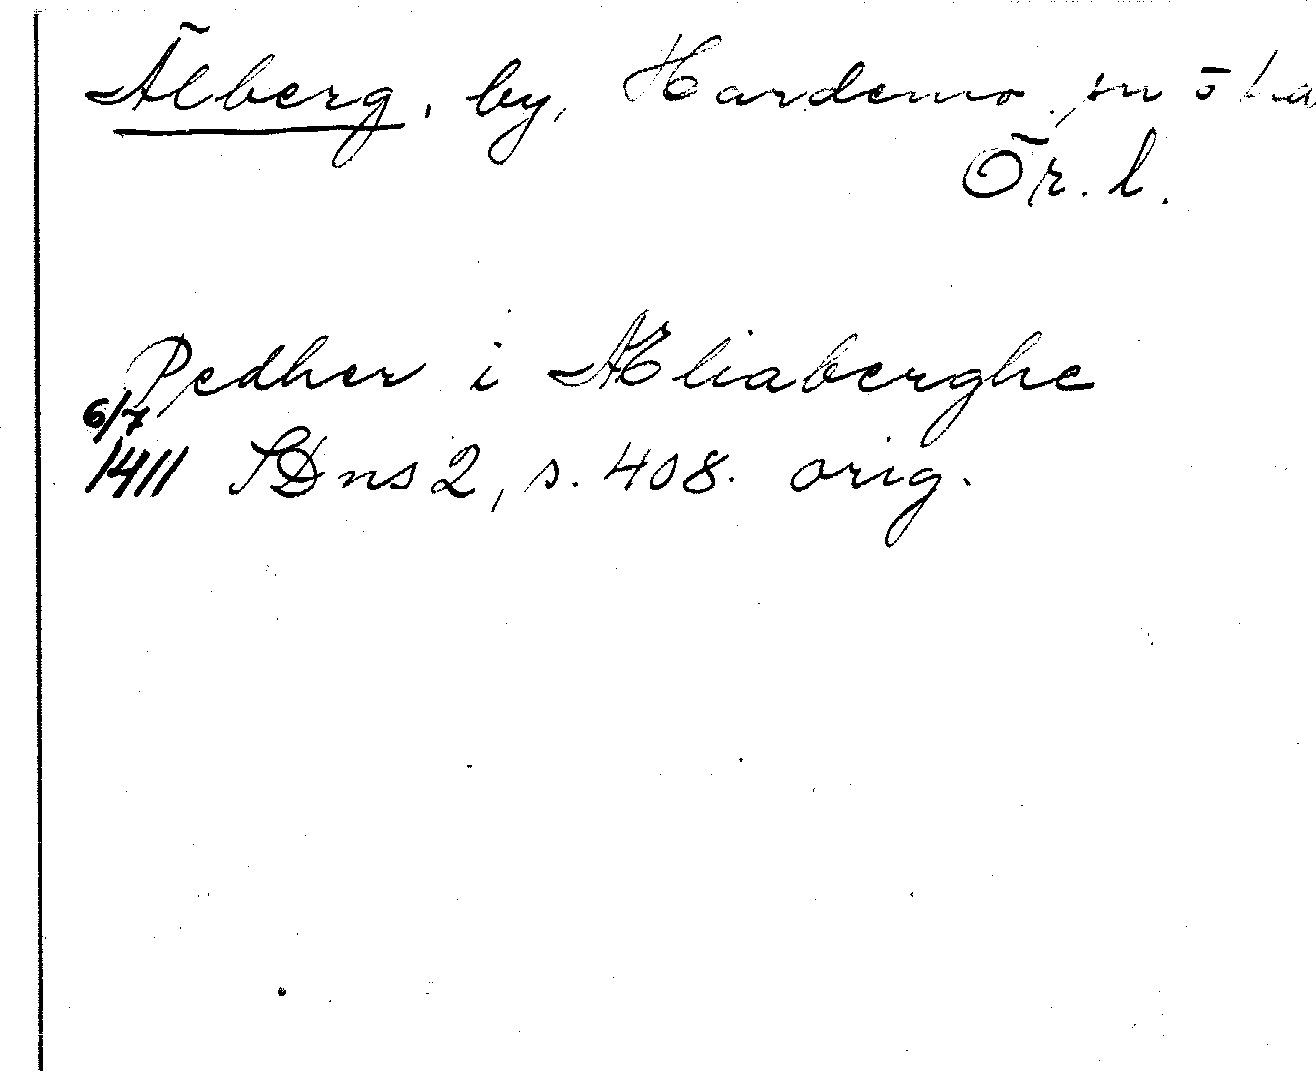 Älberg, by, Hardemo sn
Ör. l.
Pedher i Æliaberghe
6/7
1411 SDns 2, s. 408. orig.